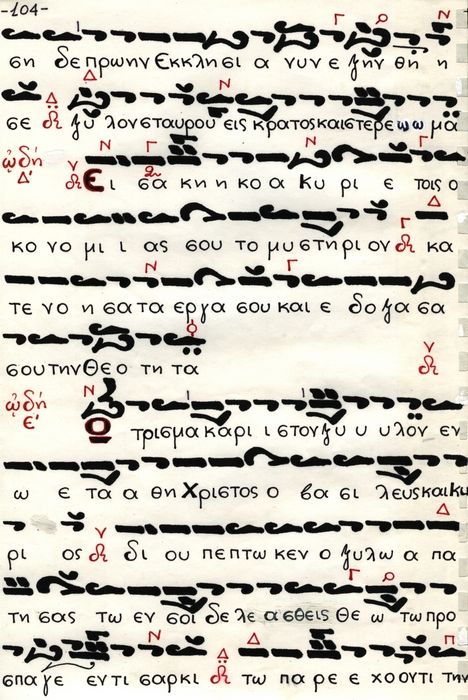 -104-
ση δε πρωην Εκκλησι α νυν ε ξην θη η
σε ξυ λον σταυρου εις κρατος και στερε ω ω μα
ᾠδή Δ'
Ει σα κη κο α Κυ ρι ε τοις ο
κο νο μι ι ας σου το μυ στη ρι ον κα
τε νο η σα τα εργα σου και ε δο ξα σα
σου την Θε ο τη τα
ᾠδή Ε'
Ο τρισ μα κα ρι ι στον ξυ υ υ λον εν
ω ε τα α θη Χριστος ο βα σι λευς και κυ
ρι ος δι ου πε πτω κεν ο ξυ λω α πα
τη σας τω εν σοι δε λε α σθεις Θε ω τω προ
σπα γε εν τι σαρκι τω πα ρε ε χο ον τι την